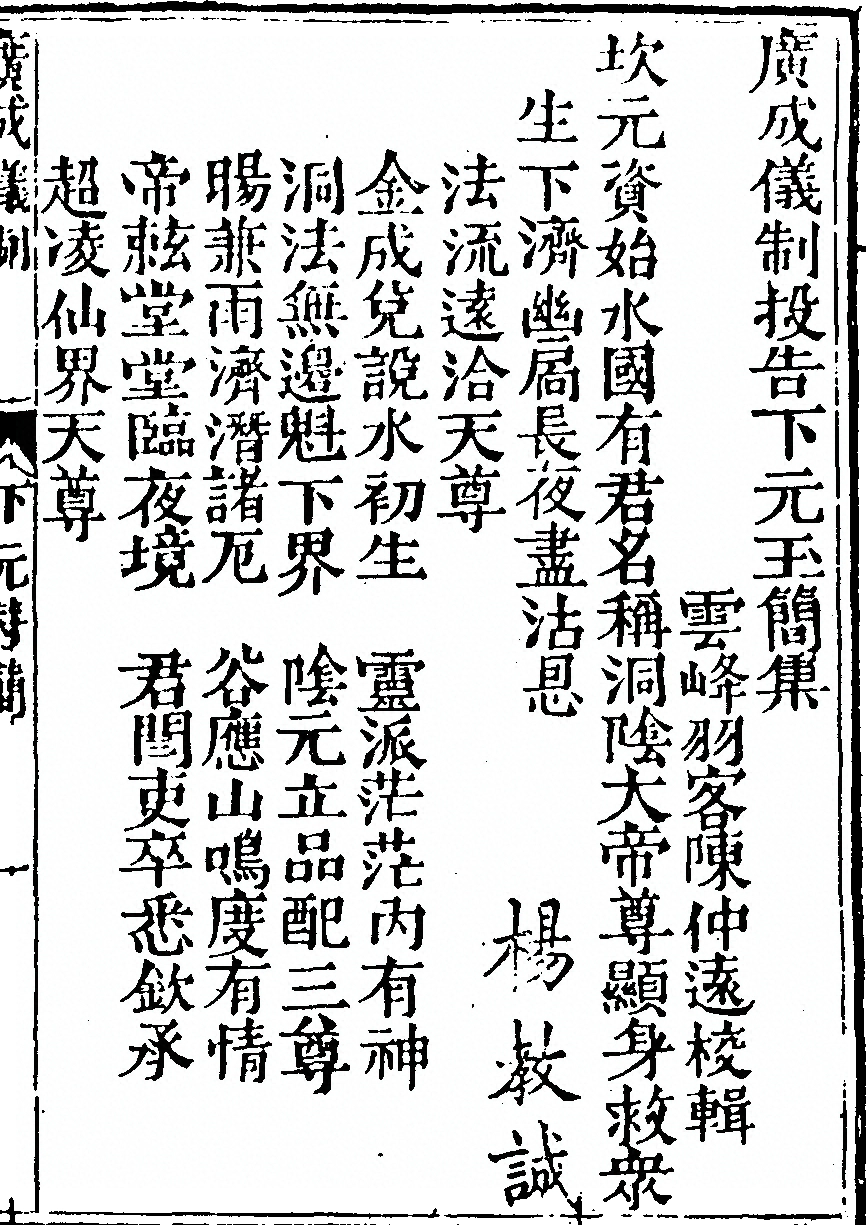 廣成儀制投告下元玉簡集
雲峰羽客陳仲遠校輯
坎元資始水國有君名稱洞陰大帝尊顯身救衆
生下濟幽扃長夜盡沾恩
法流遠洽天尊
楊教誠
金成兌說水初生　靈派茫茫內有神
洞法無邊魁下界　陰元立品配三尊
暘兼雨濟潛諸厄　谷應山鳴度有情
帝兹堂堂臨夜境　君閽吏卒悉欽承
超凌仙界天尊
廣成儀制
下元
簡